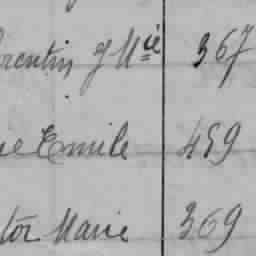 orentin J Mie 367
ie Emile 459
tor Marie 369